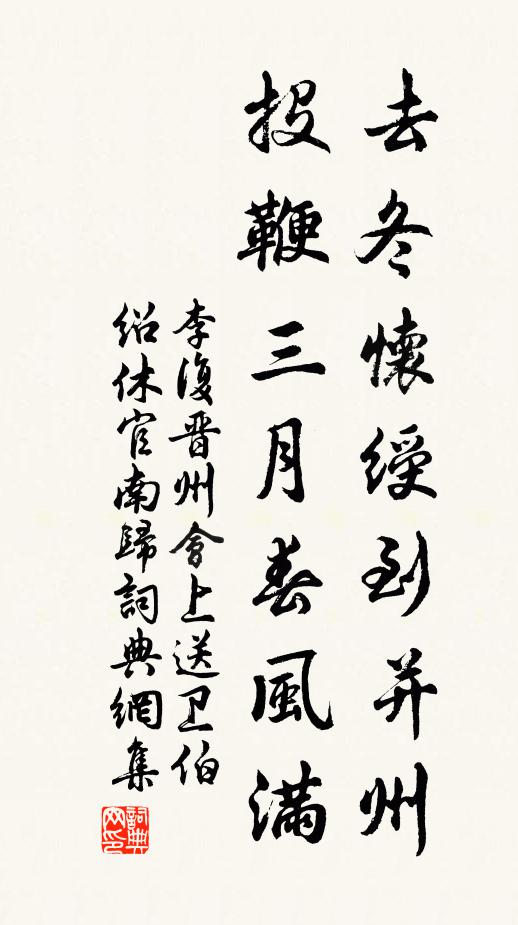 去冬懷綬到并州
投鞭三月春風滿
李復晋州會上送卫伯
紹休官南歸詞典網集
詞典网印